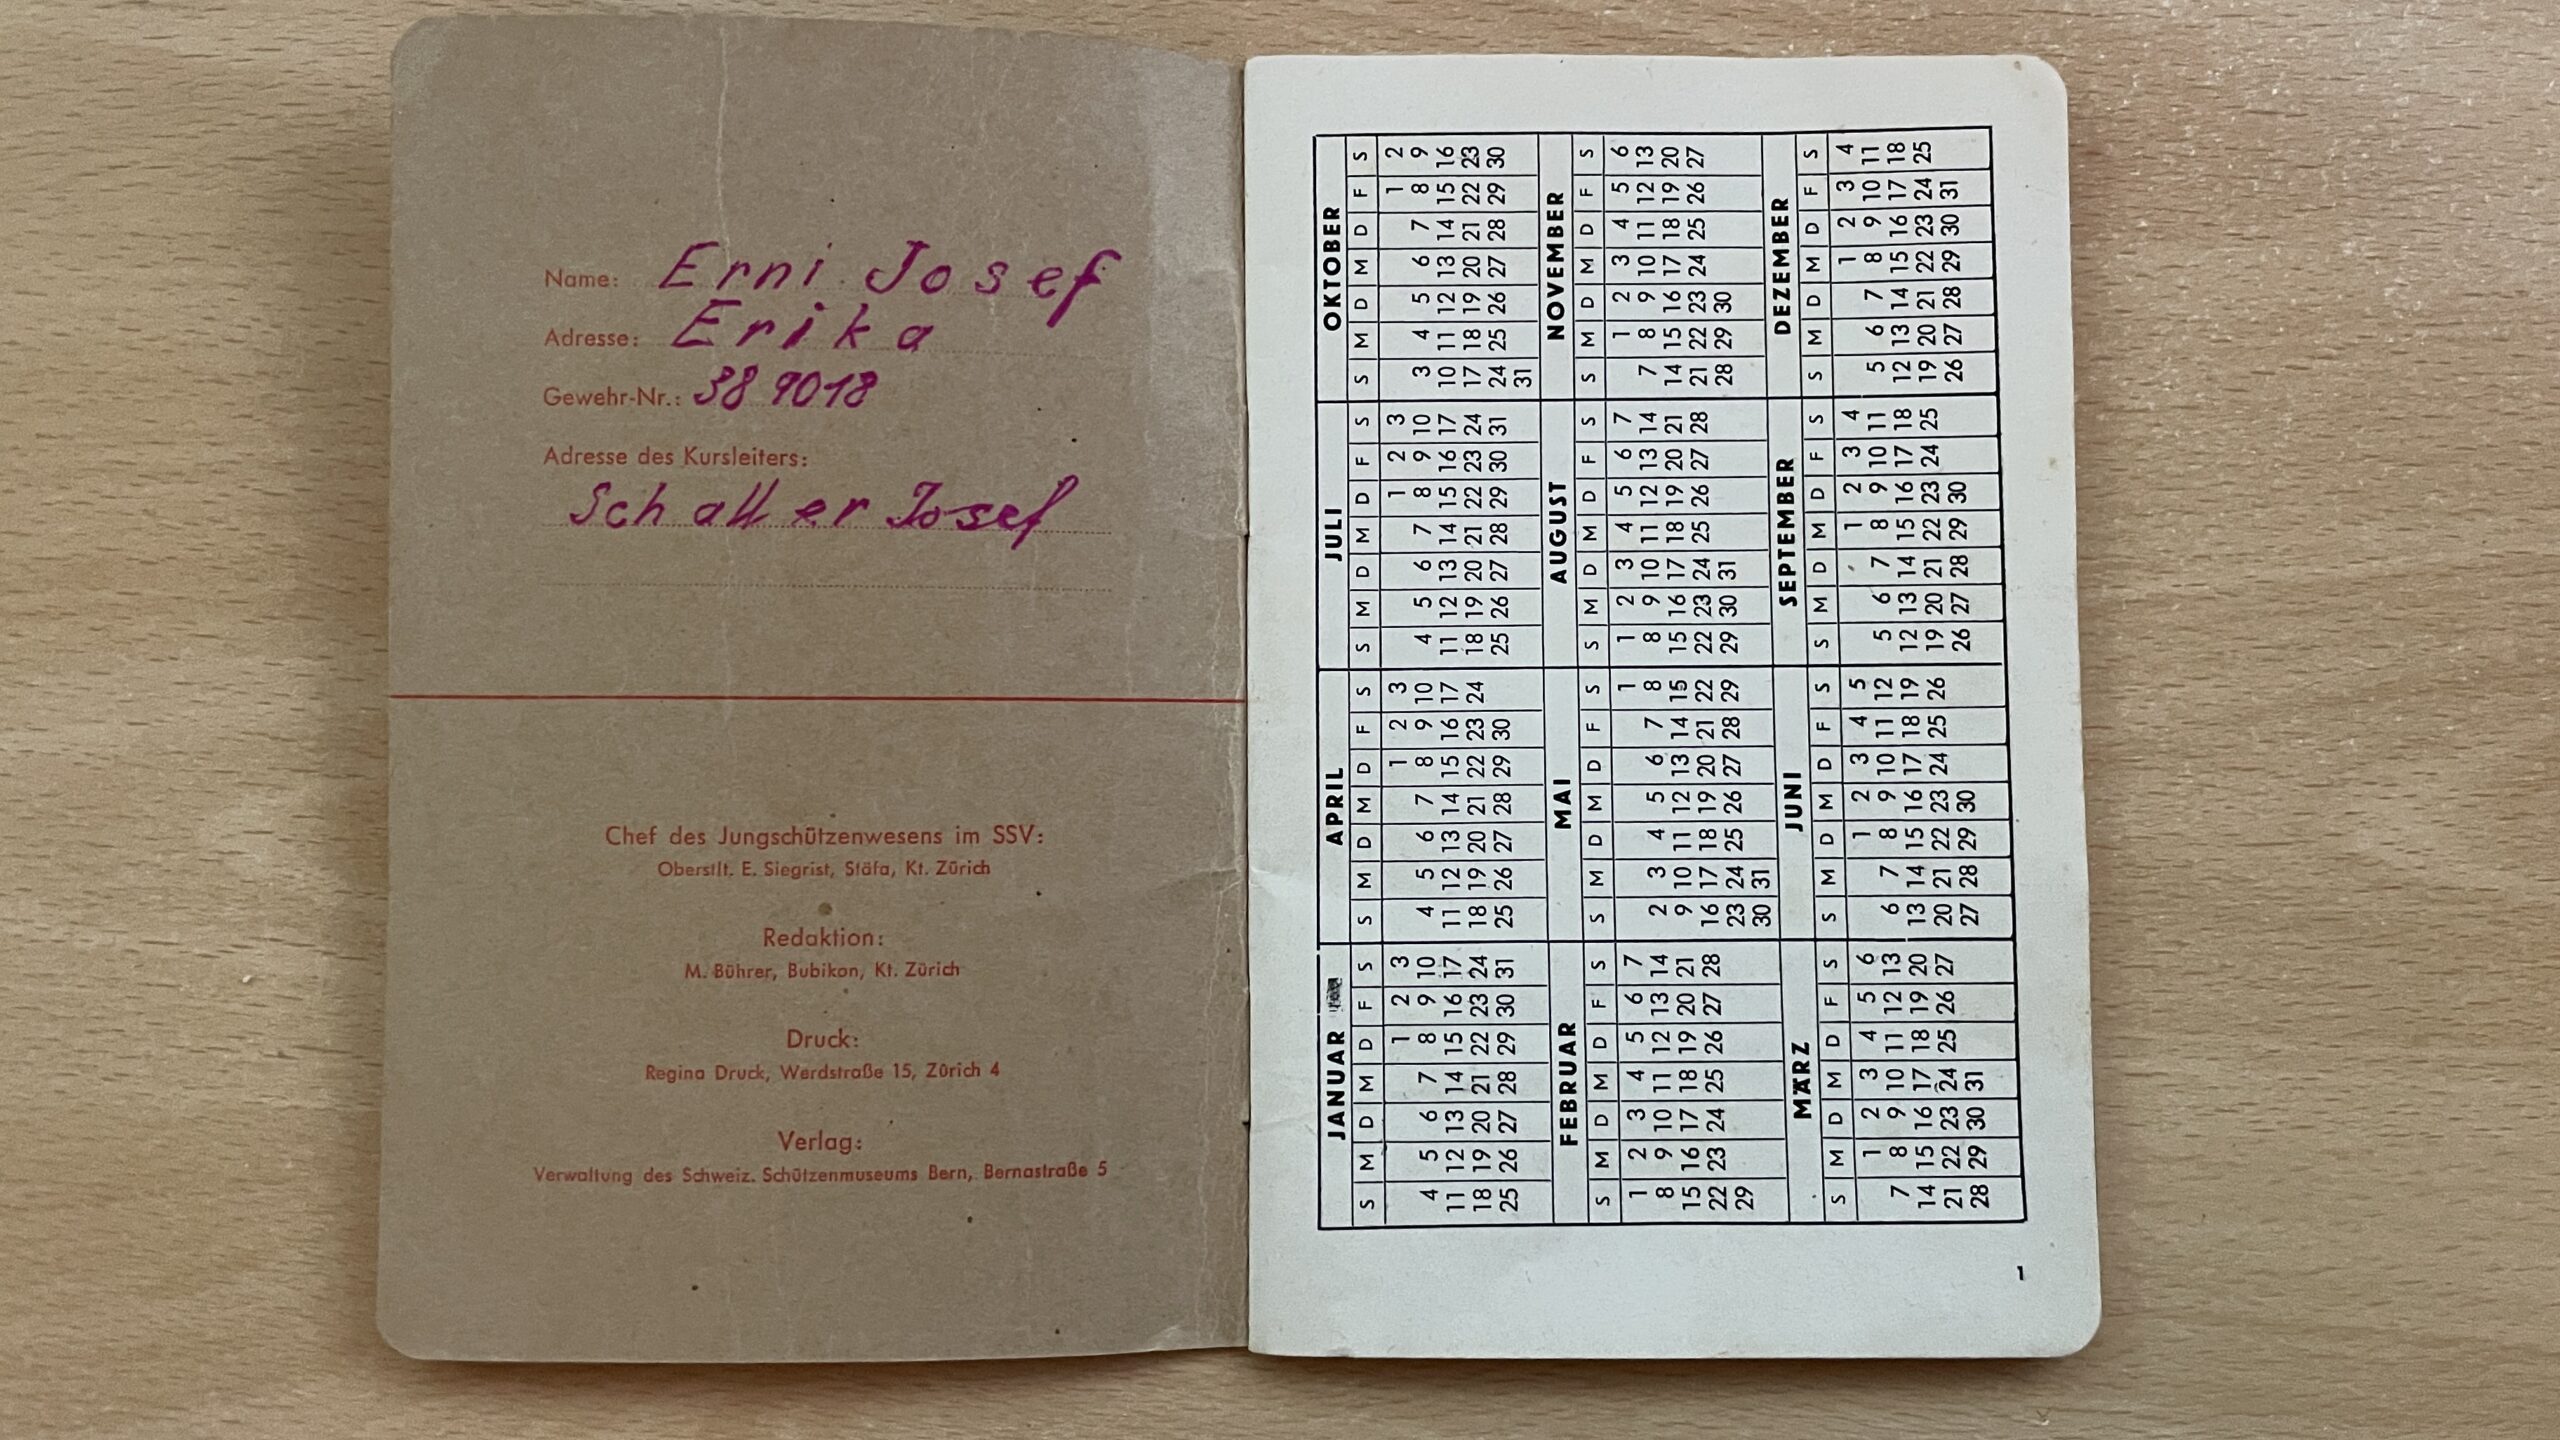 Name: Erni Josef
Adresse: Erika
Gewehr-Nr.: 389018
Adresse des Kursleiters:
Schaller Josef
Chef des Jungschützenwesens im SSV:
Oberstlt. E. Siegrist, Stäfa, Kt. Zürich
Redaktion:
M. Bührer, Bubikon, Kt. Zürich
Druck:
Regina Druck, Werdstraße 15, Zürich 4
Verlag:
Verwaltung des Schweiz. Schützenmuseums Bern, Bernastraße 5
JANUAR
S M D M D F S
1 2 3
4 5 6 7 8 9 10
11 12 13 14 15 16 17
18 19 20 21 22 23 24
25 26 27 28 29 30 31
APRIL
S M D M D F S
1 2 3
4 5 6 7 8 9 10
11 12 13 14 15 16 17
18 19 20 21 22 23 24
25 26 27 28 29 30
JULI
S M D M D F S
1 2 3
4 5 6 7 8 9 10
11 12 13 14 15 16 17
18 19 20 21 22 23 24
25 26 27 28 29 30 31
OKTOBER
S M D M D F S
1 2
3 4 5 6 7 8 9
10 11 12 13 14 15 16
17 18 19 20 21 22 23
24 25 26 27 28 29 30
31
FEBRUAR
S M D M D F S
1 2 3 4 5 6 7
8 9 10 11 12 13 14
15 16 17 18 19 20 21
22 23 24 25 26 27 28
29
MAI
S M D M D F S
1
2 3 4 5 6 7 8
9 10 11 12 13 14 15
16 17 18 19 20 21 22
23 24 25 26 27 28 29
30 31
AUGUST
S M D M D F S
1 2 3 4 5 6 7
8 9 10 11 12 13 14
15 16 17 18 19 20 21
22 23 24 25 26 27 28
29 30 31
NOVEMBER
S M D M D F S
1 2 3 4 5 6
7 8 9 10 11 12 13
14 15 16 17 18 19 20
21 22 23 24 25 26 27
28 29 30
MÄRZ
S M D M D F S
1 2 3 4 5 6
7 8 9 10 11 12 13
14 15 16 17 18 19 20
21 22 23 24 25 26 27
28 29 30 31
JUNI
S M D M D F S
1 2 3 4 5
6 7 8 9 10 11 12
13 14 15 16 17 18 19
20 21 22 23 24 25 26
27 28 29 30
SEPTEMBER
S M D M D F S
1 2 3 4
5 6 7 8 9 10 11
12 13 14 15 16 17 18
19 20 21 22 23 24 25
26 27 28 29 30
DEZEMBER
S M D M D F S
1 2 3 4
5 6 7 8 9 10 11
12 13 14 15 16 17 18
19 20 21 22 23 24 25
26 27 28 29 30 31
1